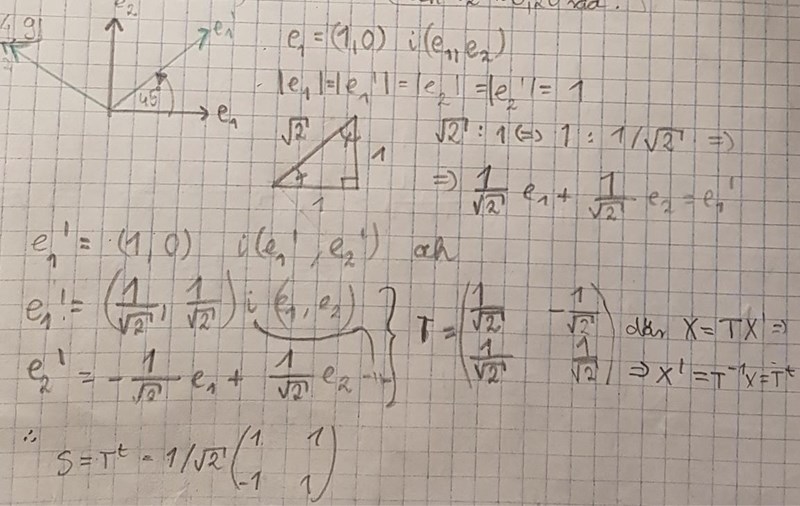 e₂
e₁'
45°
e₁
e₁ = (1,0) i (e₁, e₂)
|e₁| = |e₁'| = |e₂'| = |e₂'| = 1
√2
1
1
√2 : 1 ⇔ 1 : 1/√2 ⇒
⇒ 1/√2 e₁ + 1/√2 e₂ = e₁'
e₁' = (1,0) i (e₁', e₂') och
e₁' = (1/√2, 1/√2) i (e₁, e₂)
e₂' = -1/√2 e₁ + 1/√2 e₂ -"-
T = (1/√2 -1/√2
1/√2 1/√2) där X = TX' ⇒
⇒ X' = T⁻¹X = Tᵗ
∴
S = Tᵗ = 1/√2 (1 1
-1 1)